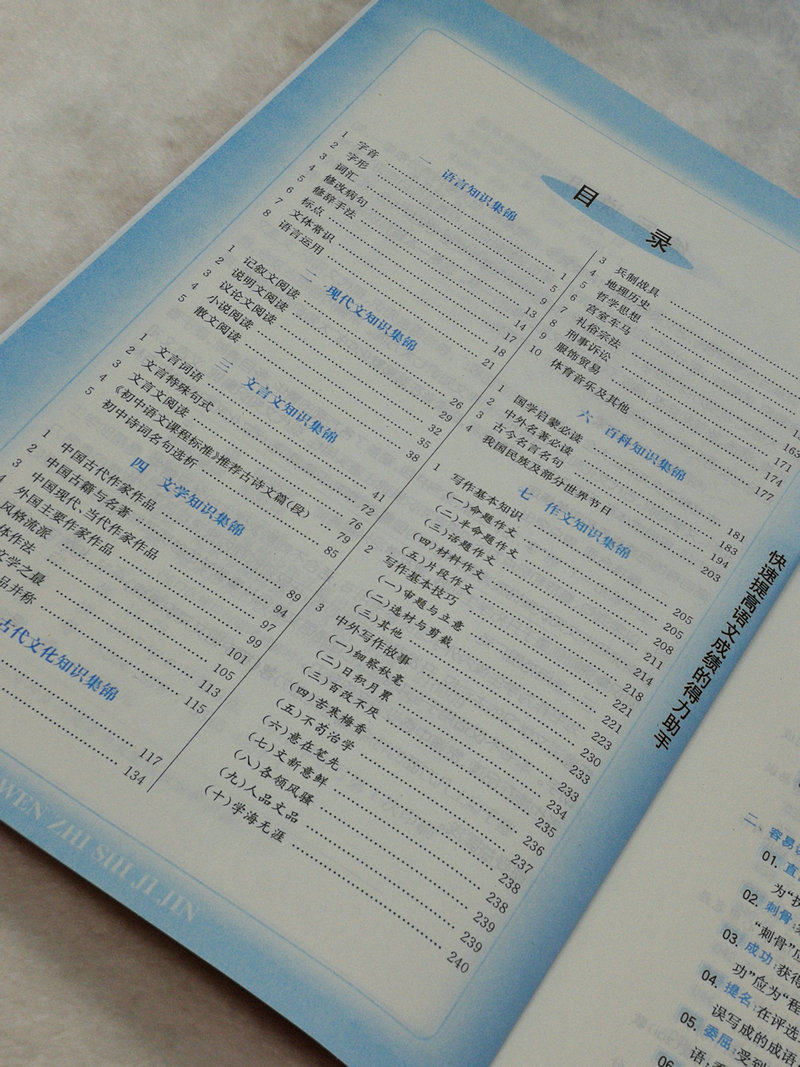 目 录
一 语言知识集锦
1 字音 1
2 字形 5
3 词汇 9
4 修改病句 13
5 修辞手法 14
6 标点 17
7 文体常识 18
8 语言运用 21
二 现代文知识集锦
1 记叙文阅读 26
2 说明文阅读 29
3 议论文阅读 32
4 小说阅读 35
5 散文阅读 38
三 文言文知识集锦
1 文言词语 41
2 文言特殊句式 72
3 文言文阅读 76
4 《初中语文课程标准》推荐古诗文篇(段) 79
5 初中诗词名句选析 85
四 文学知识集锦
1 中国古代作家作品 89
2 中国古籍与名著 94
3 中国现代、当代作家作品 97
4 外国主要作家作品 99
风格流派 101
体作法 105
文学之最 113
品并称 115
古代文化知识集锦
117
134
3 兵制战具
4 地理历史
5 哲学思想
6 宫室车马
7 礼俗宗法 163
8 刑事诉讼 171
9 服饰贸易 174
10 体育音乐及其他 177
六 百科知识集锦
1 国学启蒙必读 181
2 中外名著必读 183
3 古今名言名句 194
4 我国民族及部分世界节日 203
七 作文知识集锦
1 写作基本知识 205
(一)命题作文 205
(二)半命题作文 208
(三)话题作文 211
(四)材料作文 214
(五)片段作文 218
2 写作基本技巧 221
(一)审题与立意 221
(二)选材与剪裁 223
(三)其他 230
3 中外写作故事 233
(一)细察秋毫 233
(二)日积月累 234
(三)百改不厌 235
(四)苦寒梅香 236
(五)不苟治学 237
(六)意在笔先 238
(七)文新意鲜 238
(八)各领风骚 239
(九)人品文品 239
(十)学海无涯 240
WEN ZHI SHI JI JIN
快速提高语文成绩的得力助手
二、容易
01. 直
为“执
02. 刺骨:
“刺骨”应
03. 成功:获得
功”应为“程
04. 提名:在评选
误写成的成语
05. 委屈:受到
语;
06